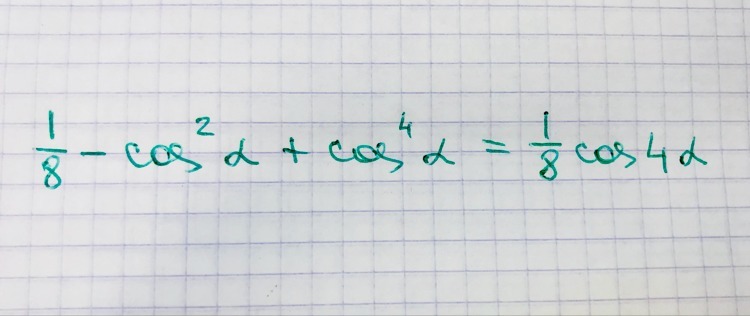 1/8 - cos²α + cos⁴α = 1/8 cos4α